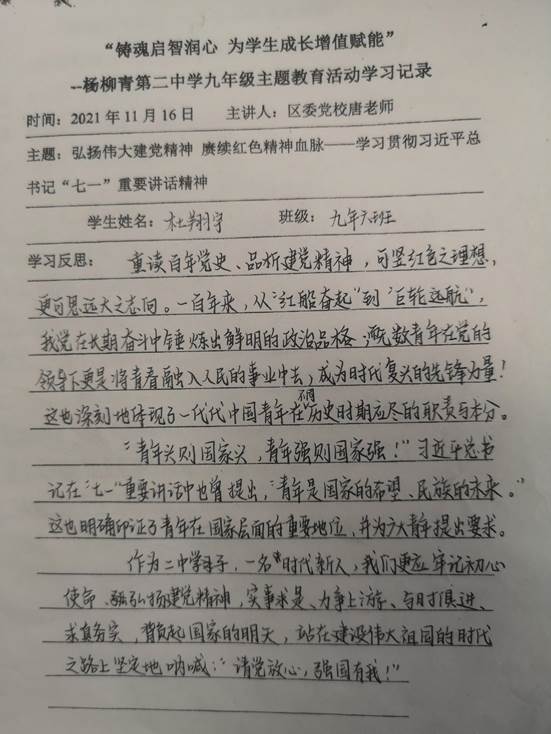 “铸魂启智润心 为学生成长增值赋能”
--杨柳青第二中学九年级主题教育活动学习记录
时间：2021年11月16日 主讲人：区委党校唐老师
主题：弘扬伟大建党精神 赓续红色精神血脉——学习贯彻习近平总
书记“七一”重要讲话精神
学生姓名：杜翔宇 班级：九年六班
学习反思： 重读百年党史、品析建党精神，可坚红色之理想，
更可思远大之志向。一百年来，从“红船奋起”到“巨轮远航”，
我党在长期奋斗中锤炼出鲜明的政治品格；无数青年在党的
领导下更是将青春融入人民的事业中去，成为时代复兴的先锋力量！
这也深刻地体现了一代代中国青年在不同历史时期应尽的职责与本分。
“青年兴则国家兴，青年强则国家强！”习近平总书
记在“七一”重要讲话中也曾提出，“青年是国家的希望、民族的未来。”
这也明确印证了青年在国家层面的重要地位，并为广大青年提出要求。
作为二中学子，一名时代新人，我们更应牢记初心
使命，弘扬建党精神，实事求是、力争上游、与时俱进、
求真务实，背负起国家的明天，站在建设伟大祖国的时代
之路上坚定地呐喊：“请党放心，强国有我！”